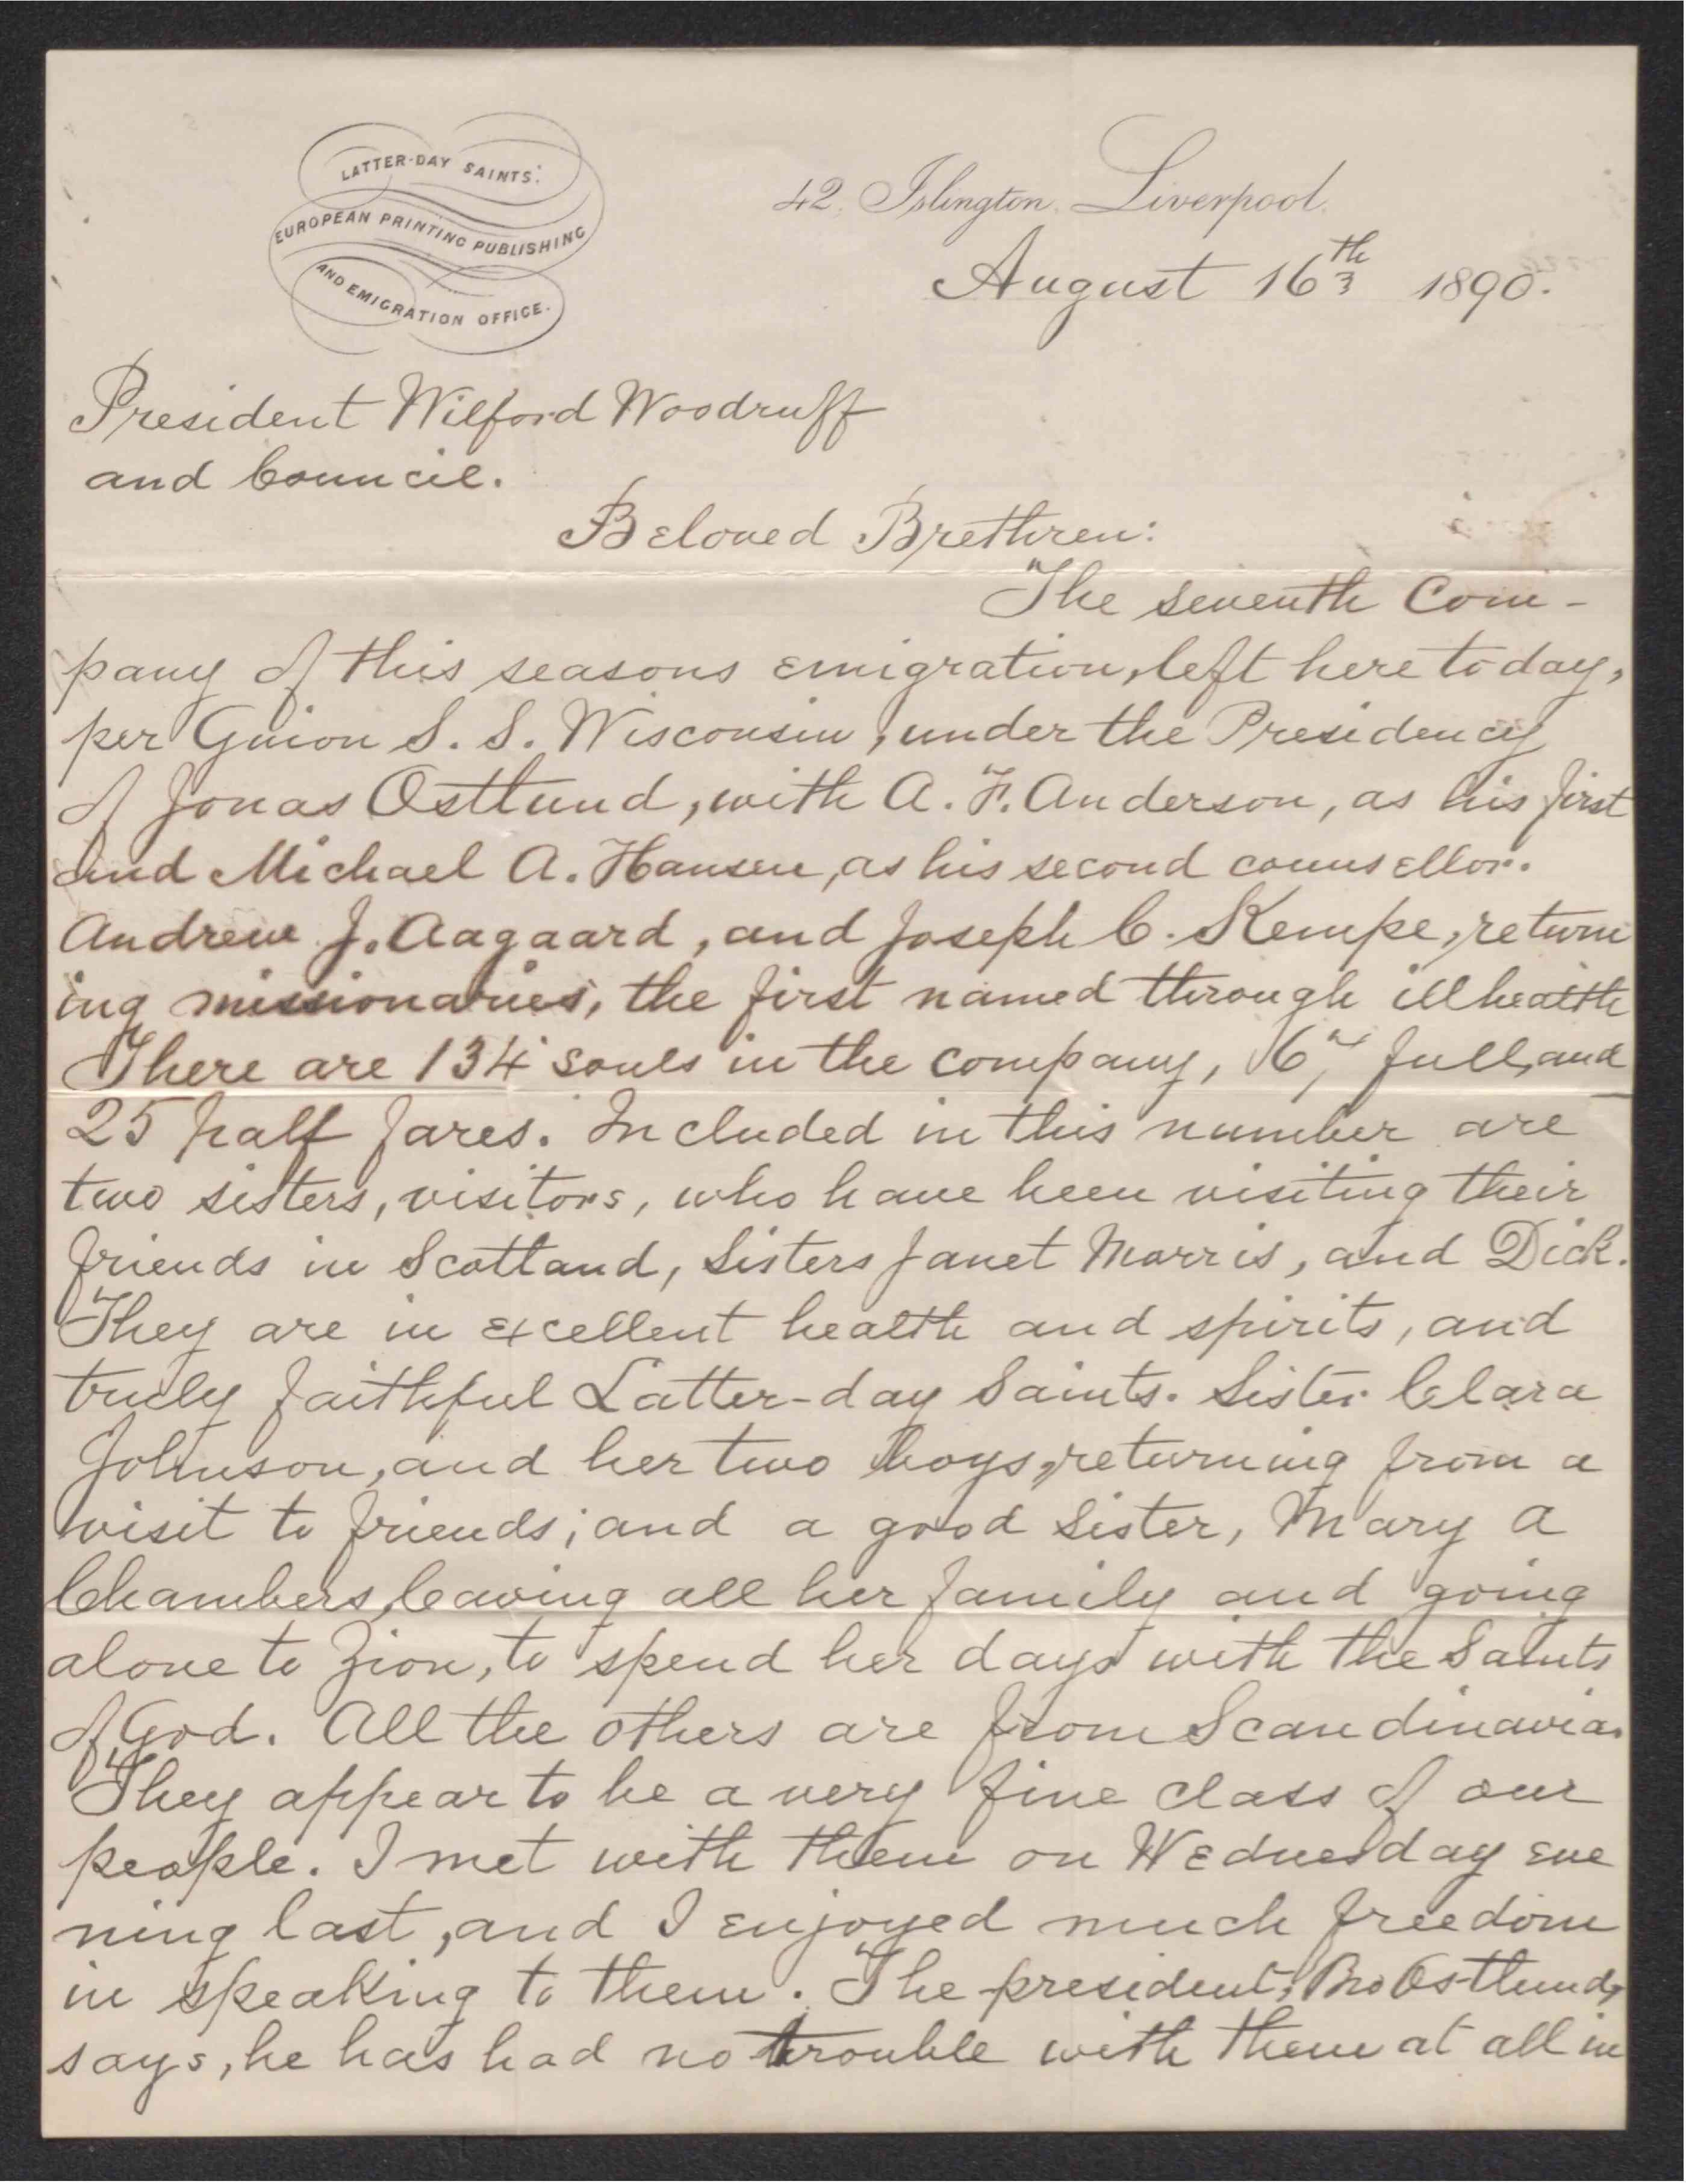 LATTER-DAY SAINTS'
EUROPEAN PRINTING PUBLISHING
AND EMIGRATION OFFICE.
42, Islington, Liverpool.
August 16th 1890.
President Wilford Woodruff
and Council.
Beloved Brethren:
The seventh Com-
pany of this seasons emigration, left here today,
per Guion S. S. Wisconsin, under the Presidency
of Jonas Ostlund, with A. F. Anderson, as his first
and Michael A. Hansen, as his second counsellor.
Andrew J. Aagaard, and Joseph C. Kempe, return
ing missionaries, the first named through ill health
There are 134 souls in the company, full, and
25 half fares. Included in this number are
two sisters, visitors, who have been visiting their
friends in Scotland, Sisters Janet Morris, and Dick.
They are in excellent health and spirits, and
truly faithful Latter-day Saints. Sister Clara
Johnson, and her two boys, returning from a
visit to friends; and a good sister, Mary A
Chambers, leaving all her family and going
alone to Zion, to spend her days with the Saints
of God. All the others are from Scandinavia.
They appear to be a very fine class of our
people. I met with them on Wednesday eve
ning last, and I enjoyed much freedom
in speaking to them. The president, Bro Ostlund,
says, he has had no trouble with them at all in